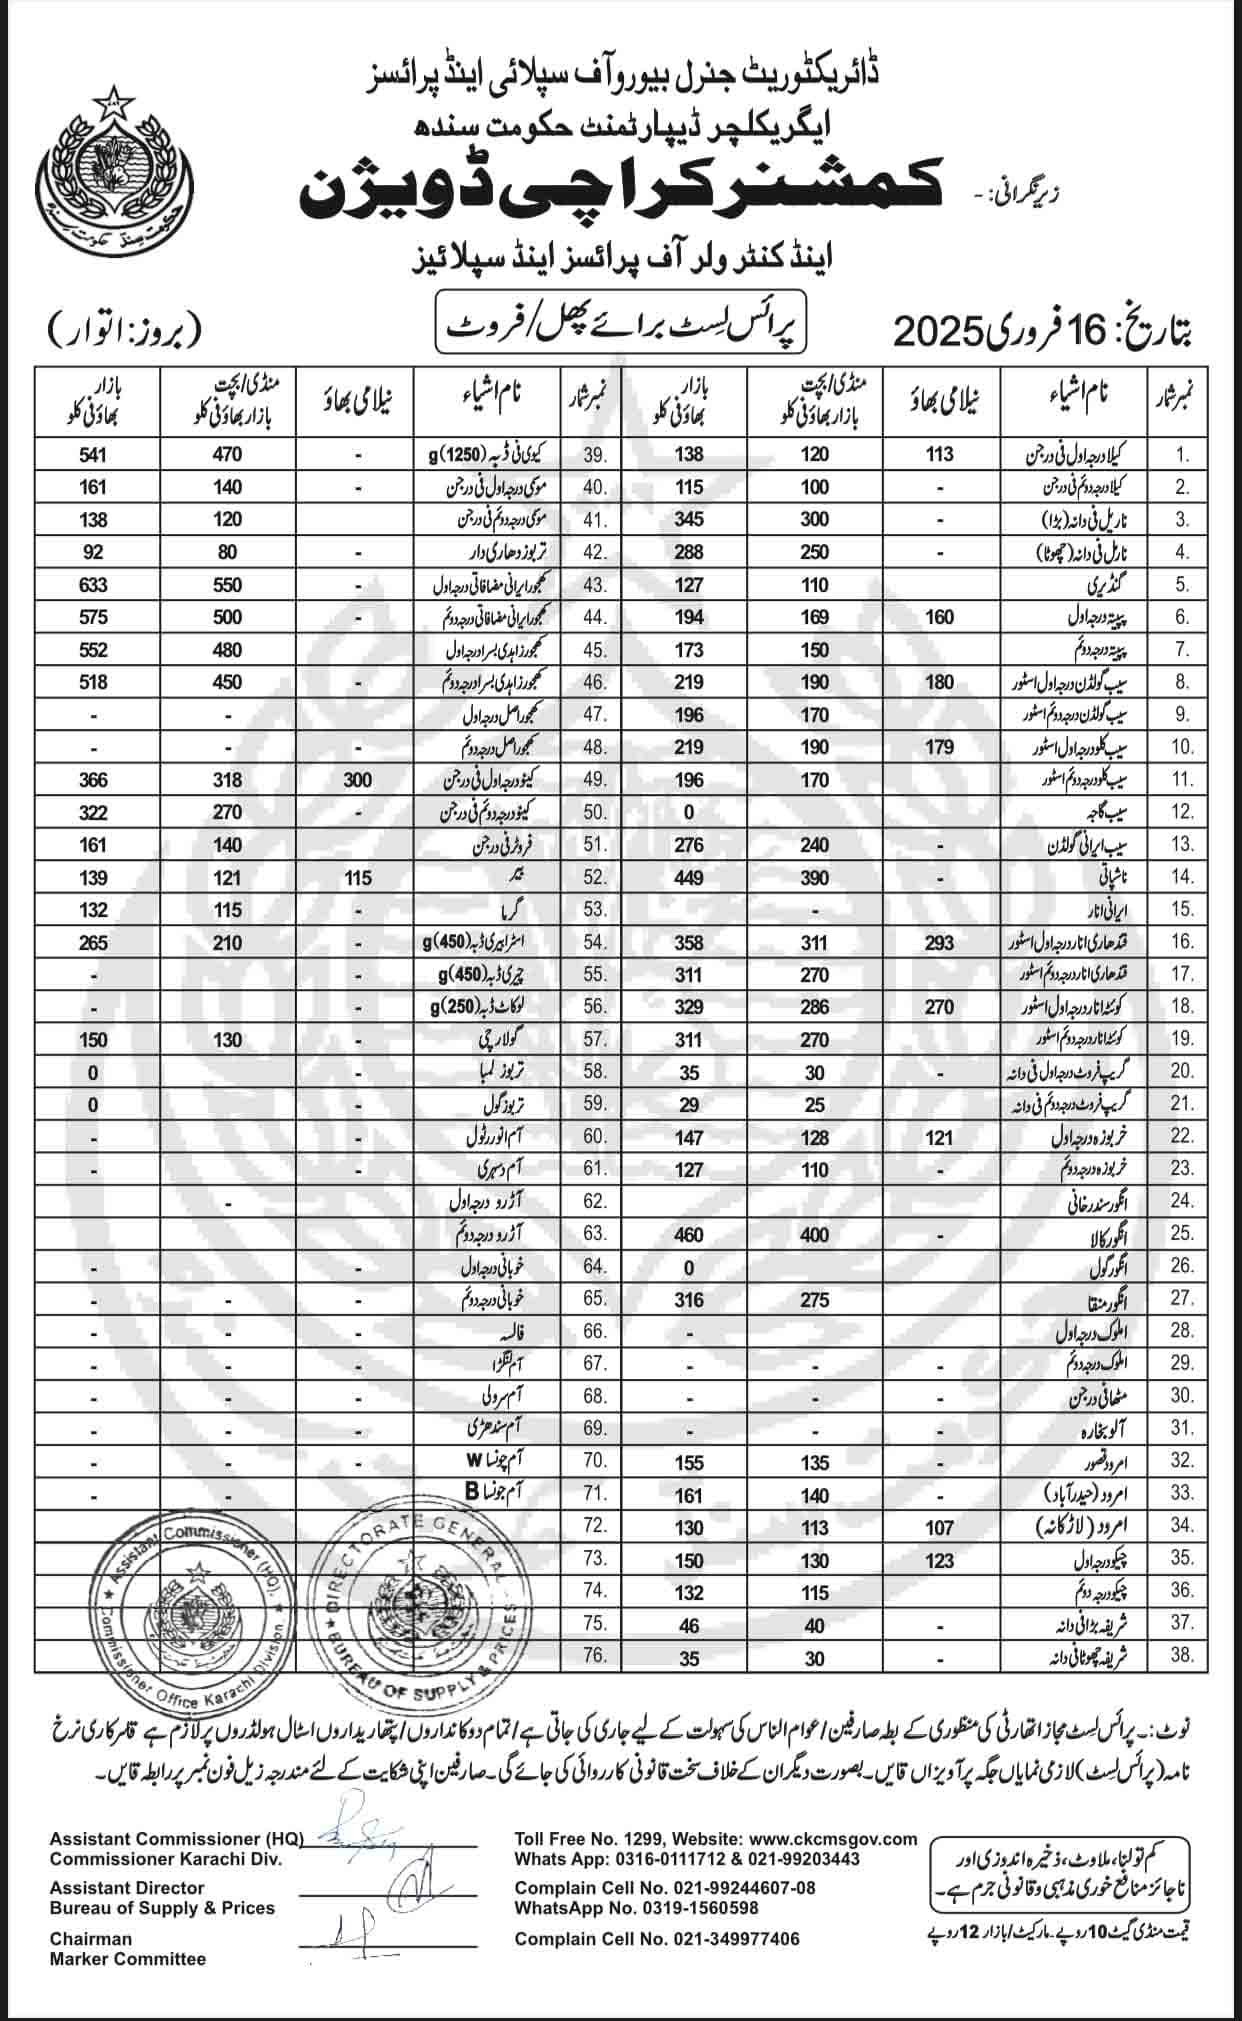 ڈائریکٹوریٹ جنرل بیورو آف سپلائی اینڈ پرائسز
ایگریکلچر ڈیپارٹمنٹ حکومت سندھ
زیرنگرانی: - کمشنر کراچی ڈویژن
اینڈ کنٹرولر آف پرائسز اینڈ سپلائیز
بتاریخ: 16 فروری 2025 پرائس لسٹ برائے پھل/فروٹ (بروز: اتوار)
نمبر شمار نام اشیاء نیلامی بھاؤ منڈی/بچت بازار بھاؤ فی کلو بازار بھاؤ فی کلو نمبر شمار نام اشیاء نیلامی بھاؤ منڈی/بچت بازار بھاؤ فی کلو بازار بھاؤ فی کلو
1. کیلا درجہ اول فی درجن 113 120 138 39. کیوی فی ڈبہ (1250)g - 470 541
2. کیلا درجہ دوئم فی درجن - 100 115 40. موسمی درجہ اول فی درجن - 140 161
3. ناریل فی دانہ (بڑا) - 300 345 41. موسمی درجہ دوئم فی درجن - 120 138
4. ناریل فی دانہ (چھوٹا) - 250 288 42. تربوز دھاری دار - 80 92
5. گنڈیری 110 127 43. کھجور ایرانی مضافاتی درجہ اول - 550 633
6. پپیتہ درجہ اول 160 169 194 44. کھجور ایرانی مضافاتی درجہ دوئم - 500 575
7. پپیتہ درجہ دوئم 150 173 45. کھجور زاہدی بسرا درجہ اول - 480 552
8. سیب گولڈن درجہ اول اسٹور 180 190 219 46. کھجور زاہدی بسرا درجہ دوئم - 450 518
9. سیب گولڈن درجہ دوئم اسٹور 170 196 47. کھجور اصل درجہ اول - -
10. سیب کلو درجہ اول اسٹور 179 190 219 48. کھجور اصل درجہ دوئم - - -
11. سیب کلو درجہ دوئم اسٹور 170 196 49. کینو درجہ اول فی درجن 300 318 366
12. سیب گاجہ 0 50. کینو درجہ دوئم فی درجن - 270 322
13. سیب ایرانی گولڈن - 240 276 51. فروٹر فی درجن - 140 161
14. ناشپاتی - 390 449 52. بیر 115 121 139
15. ایرانی انار - 53. گرما - 115 132
16. قندھاری انار درجہ اول اسٹور 293 311 358 54. اسٹرابیری ڈبہ (450)g - 210 265
17. قندھاری انار درجہ دوئم اسٹور 270 311 55. چیری ڈبہ (450)g - -
18. کوئٹہ انار درجہ اول اسٹور 270 286 329 56. لوکاٹ ڈبہ (250)g - -
19. کوئٹہ انار درجہ دوئم اسٹور 270 311 57. گولارچی - 130 150
20. گریپ فروٹ درجہ اول فی دانہ - 30 35 58. تربوز لمبا - 0
21. گریپ فروٹ درجہ دوئم فی دانہ - 25 29 59. تربوز گول - 0
22. خربوزہ درجہ اول 121 128 147 60. آم انور رٹول - -
23. خربوزہ درجہ دوئم - 110 127 61. آم دسہری - -
24. انگور سندرخانی 62. آڑرو درجہ اول -
25. انگور کالا - 400 460 63. آڑرو درجہ دوئم -
26. انگور گول 0 64. خوبانی درجہ اول - -
27. انگور منقا 275 316 65. خوبانی درجہ دوئم - - -
28. املوک درجہ اول - 66. فالسہ - - -
29. املوک درجہ دوئم - - - 67. آم لنگڑا - - -
30. مٹھا فی درجن - - - 68. آم سرولی - - -
31. آلو بخارہ - - - 69. آم سندھڑی - - -
32. امرود قصور 135 155 70. آم چونسا W - - -
33. امرود (حیدرآباد) - 140 161 71. آم چونسا B - -
34. امرود (لاڑکانہ) 107 113 130 72.
35. چیکو درجہ اول 123 130 150 73.
36. چیکو درجہ دوئم 115 132 74.
37. شریفہ بڑا فی دانہ - 40 46 75.
38. شریفہ چھوٹا فی دانہ - 30 35 76.
Assistant Commissioner (HQ).
Commissioner Office Karachi Division
DIRECTORATE GENERAL
BUREAU OF SUPPLY & PRICES
نوٹ:۔ پرائس لسٹ مجاز اتھارٹی کی منظوری کے بطہ صارفین/عوام الناس کی سہولت کے لیے جاری کی جاتی ہے/تمام دوکانداروں/پتھاریداروں اسٹال ہولڈروں پر لازم ہے قلسرکاری نرخ
نامہ (پرائس لسٹ) لازمی نمایاں جگہ پر آویزاں قایں۔ بصورت دیگر ان کے خلاف سخت قانونی کارروائی کی جائے گی۔ صارفین اپنی شکایت کے لئے مندرجہ زیل فون نمبر پر رابطہ قایں۔
Assistant Commissioner (HQ)
Commissioner Karachi Div.
Assistant Director
Bureau of Supply & Prices
Chairman
Marker Committee
Toll Free No. 1299, Website: www.ckcmsgov.com
Whats App: 0316-0111712 & 021-99203443
Complain Cell No. 021-99244607-08
WhatsApp No. 0319-1560598
Complain Cell No. 021-349977406
کم تولنا، ملاوٹ، ذخیرہ اندوزی اور
ناجائز منافع خوری مذہبی و قانونی جرم ہے۔
قیمت منڈی گیٹ 10 روپے۔ مارکیٹ/بازار 12 روپے